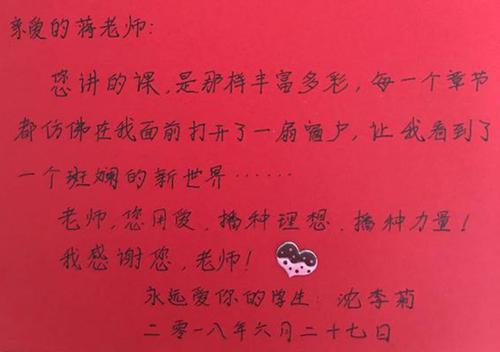 亲爱的蒋老师：
您讲的课，是那样丰富多彩，每一个章节
都仿佛在我面前打开了一扇窗户，让我看到了
一个斑斓的新世界……
老师，您用爱，播种理想、播种力量！
我感谢您，老师！
永远爱你的学生：沈李菊
二零一八年六月二十七日